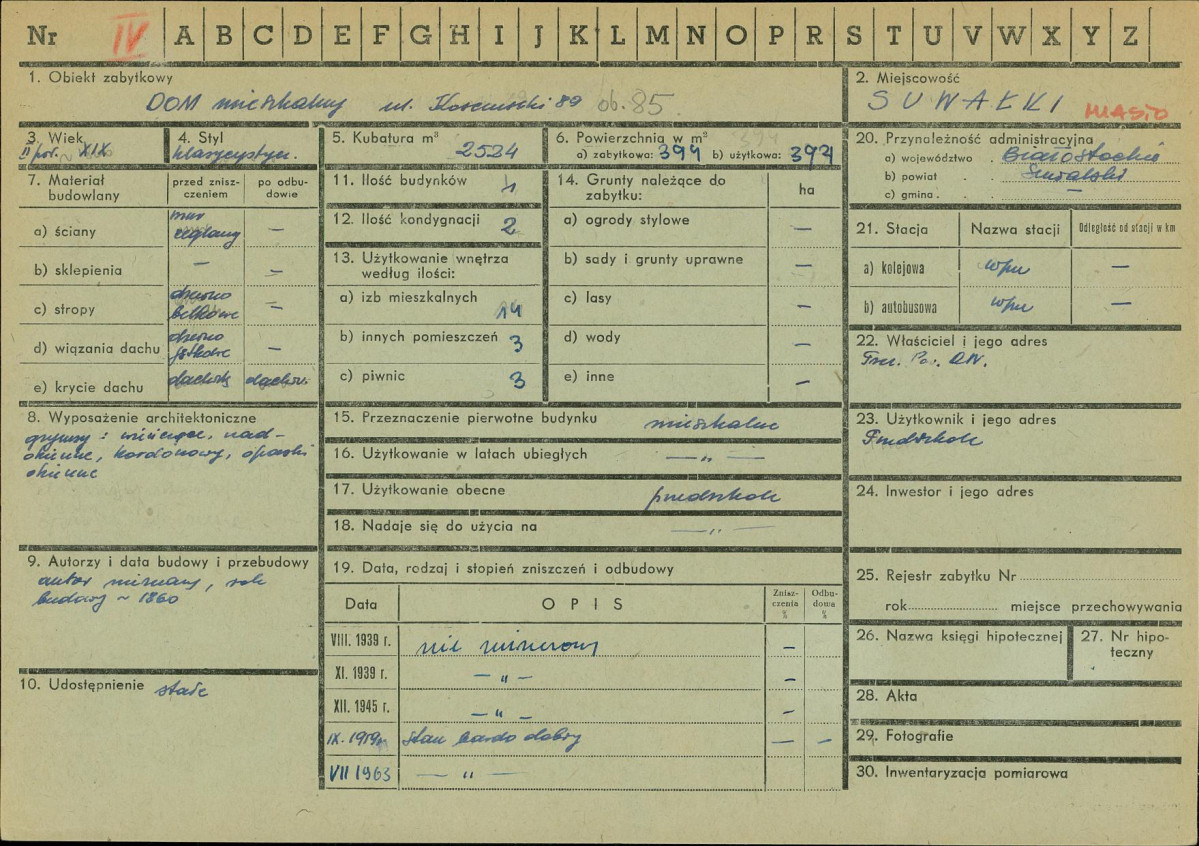 Nr IV A B C D E F G H I J K L M N O P R S T U V W X Y Z
1. Obiekt zabytkowy
DOM mieszkalny ul. Kościuszki 89 ob. 85
2. Miejscowość
SUWAŁKI MIASTO
3. Wiek
II poł. ~ XIX
4. Styl
klasycystycz.
5. Kubatura m³ 2524
6. Powierzchnia w m²
a) zabytkowa: 394 b) użytkowa: 394
7. Materiał budowlany
przed zniszczeniem
po odbudowie
a) ściany mur ceglany —
b) sklepienia — —
c) stropy drewno belkowe —
d) wiązania dachu drewno —
e) krycie dachu dachów. dachów.
8. Wyposażenie architektoniczne
gzymsy: wieńczące, nad-
okienne, kordonowy, opaski
okienne
9. Autorzy i data budowy i przebudowy
autor nieznany, rok
budowy ~ 1860
10. Udostępnienie stałe
11. Ilość budynków 1
12. Ilość kondygnacji 2
13. Użytkowanie wnętrza
według ilości:
a) izb mieszkalnych 14
b) innych pomieszczeń 3
c) piwnic 3
14. Grunty należące do
zabytku:
ha
a) ogrody stylowe —
b) sady i grunty uprawne —
c) lasy —
d) wody —
e) inne —
15. Przeznaczenie pierwotne budynku mieszkalne
16. Użytkowanie w latach ubiegłych — „ —
17. Użytkowanie obecne przedszkole
18. Nadaje się do użycia na — „ —
19. Data, rodzaj i stopień zniszczeń i odbudowy
Data OPIS Zniszczenia % Odbudowa %
VIII. 1939 r. nie niszczony —
XI. 1939 r. — „ — —
XII. 1945 r. — „ — —
IX. 1959 r. stan bardo dobry — —
VII 1963 — „ —
20. Przynależność administracyjna
a) województwo . Białostockie
b) powiat . . Suwalski
c) gmina . . —
21. Stacja Nazwa stacji Odległość od stacji w km
a) kolejowa wpm —
b) autobusowa wpm —
22. Właściciel i jego adres
23. Użytkownik i jego adres
Przedszkole
24. Inwestor i jego adres
25. Rejestr zabytku Nr
rok miejsce przechowywania
26. Nazwa księgi hipotecznej
27. Nr hipoteczny
28. Akta
29. Fotografie
30. Inwentaryzacja pomiarowa